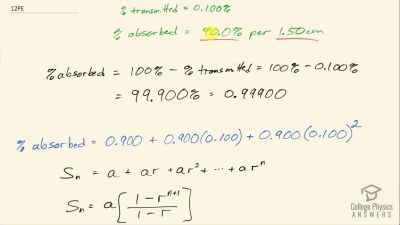 12PE
% transmitted = 0.100%
% absorbed = 90.0% per 1.50cm
% absorbed = 100% - % transmitted = 100% - 0.100%
= 99.900% = 0.99900
% absorbed = 0.900 + 0.900(0.100) + 0.900(0.100)²
Sₙ = a + ar + ar² + ... + arⁿ
Sₙ = a[(1-rⁿ⁺¹)/(1-r)]
College Physics
ANSWERS